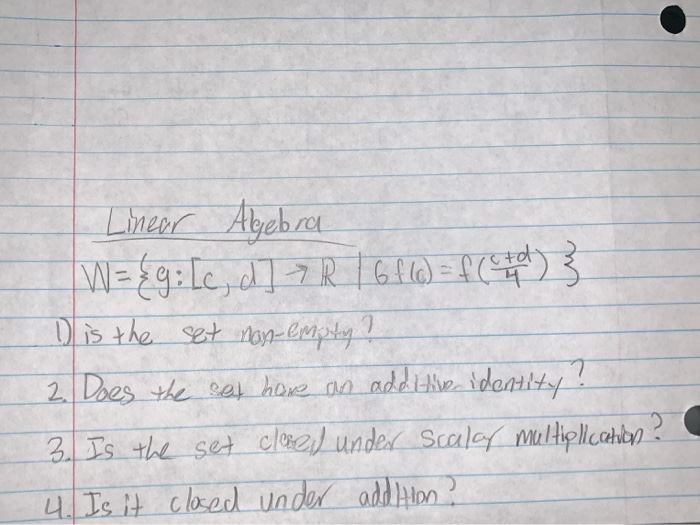 Linear Algebra
W = {g: [c, d] → ℝ | 6f(c) = f(c+d/4) }
1) is the set non-empty?
2. Does the set have an additive identity?
3. Is the set closed under scalar multiplication?
4. Is it closed under addition?